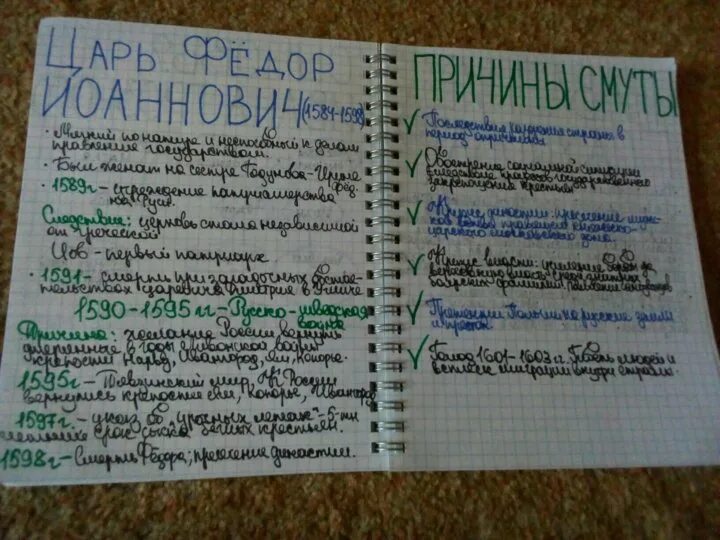 ЦАРЬ ФЁДОР
ИОАННОВИЧ (1584-1598)
• Мягкий по натуре и неспособный к делам
правления государством.
• Был женат на сестре Годунова - Ирине
• 1589г - учреждение патриаршества
на Руси. Фёд.
Следствие: церковь стала независимой
от греческой
Иов - первый патриарх.
• 1591 - смерть при загадочных обстоя-
тельствах царевича Дмитрия в Угличе
1590-1595 гг - Русско-шведская
война
Причина: желание России вернуть
утерянные в годы Ливонской войны
крепости Нарву, Ивангород, Ям, Копорье.
1595г - Тявзинский мир, России
вернулись крепости Ям, Копорье, Ивангород
1597г. - указ об "урочных летах" - 5-ти
летний срок сыска беглых крестьян.
1598г - смерть Фёдора; пресечение династии.
ПРИЧИНЫ СМУТЫ
✓ Последствия разорения страны в
период опричнины
✓ Обострение социальной ситуации
вследствие государственного
закрепощения крестьян
✓ Кризис династии: пресечение
правящего
царского московского дома.
✓ Кризис власти: усиление борьбы за
верховную власть между знатными
боярскими фамилиями. Появление самозванцев
✓ Претензии Польши на русские земли
и престол.
✓ Голод 1601-1603 гг. Гибель людей и
всплеск миграции внутри страны.